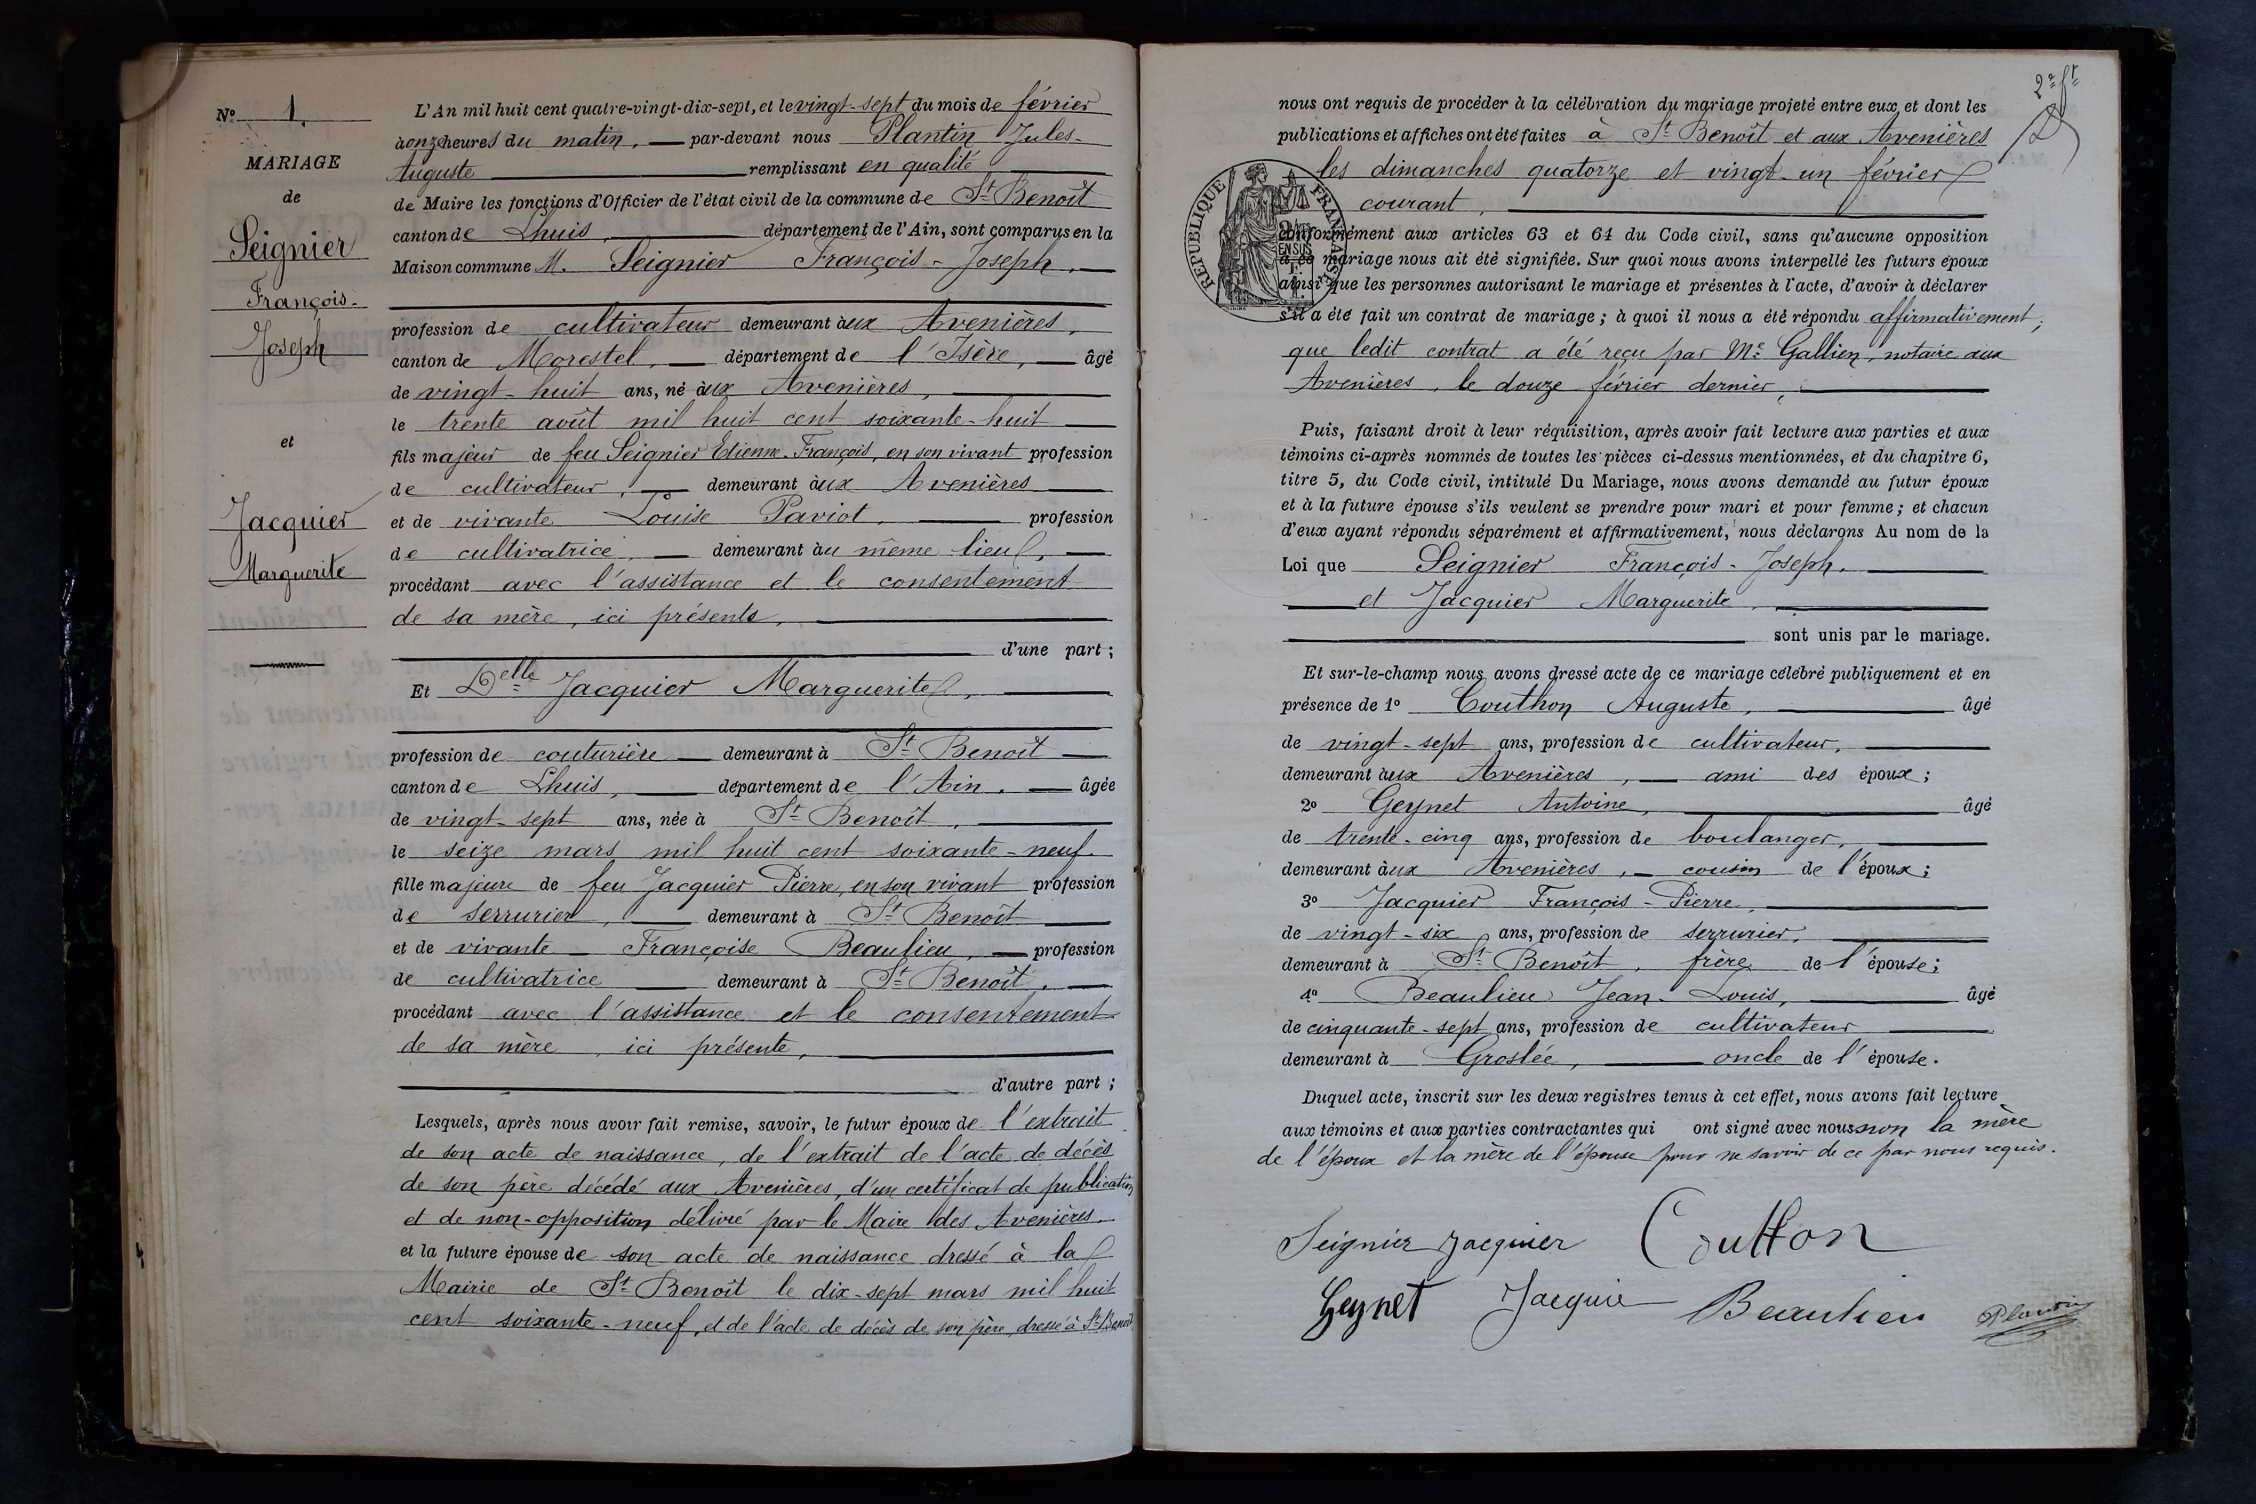 Nº 1.
MARIAGE
de
Seignier
François-
Joseph
et
Jacquier
Marguerite
L'An mil huit cent quatre-vingt-dix-sept, et le vingt-sept du mois de février
à onze heures du matin, par-devant nous Plantin Jules-
Auguste remplissant en qualité
de Maire les fonctions d'Officier de l'état civil de la commune de St Benoît
canton de Lhuis, département de l'Ain, sont comparus en la
Maison commune M. Seignier François-Joseph,
profession de cultivateur demeurant aux Avenières,
canton de Morestel, département de l'Isère, âgé
de vingt-huit ans, né aux Avenières,
le trente août mil huit cent soixante-huit
fils majeur de feu Seignier Etienne-François, en son vivant profession
de cultivateur, demeurant aux Avenières
et de vivante Louise Paviot, profession
de cultivatrice, demeurant au même lieu,
procédant avec l'assistance et le consentement
de sa mère, ici présente,
d'une part;
Et Delle Jacquier Marguerite,
profession de couturière demeurant à St Benoît
canton de Lhuis, département de l'Ain. âgée
de vingt-sept ans, née à St Benoît,
le seize mars mil huit cent soixante-neuf.
fille majeure de feu Jacquier Pierre, en son vivant profession
de serrurier, demeurant à St Benoît
et de vivante Françoise Beaulieu, profession
de cultivatrice demeurant à St Benoît.
procédant avec l'assistance et le consentement
de sa mère, ici présente,
d'autre part;
Lesquels, après nous avoir fait remise, savoir, le futur époux de l'extrait
de son acte de naissance, de l'extrait de l'acte de décès
de son père décédé aux Avenières, d'un certificat de publication
et de non-opposition délivré par le Maire des Avenières.
et la future épouse de son acte de naissance dressé à la
Mairie de St Benoît le dix-sept mars mil huit
cent soixante-neuf, et de l'acte de décès de son père, dressé à St Benoît
nous ont requis de procéder à la célébration du mariage projeté entre eux, et dont les
publications et affiches ont été faites à St Benoît et aux Avenières
les dimanches quatorze et vingt-un février
courant,
RÉPUBLIQUE FRANÇAISE
conformément aux articles 63 et 64 du Code civil, sans qu'aucune opposition
à ce mariage nous ait été signifiée. Sur quoi nous avons interpellé les futurs époux
ainsi que les personnes autorisant le mariage et présentes à l'acte, d'avoir à déclarer
s'il a été fait un contrat de mariage; à quoi il nous a été répondu affirmativement;
que ledit contrat a été reçu par Me Gallien, notaire aux
Avenières, le douze février dernier,
Puis, faisant droit à leur réquisition, après avoir fait lecture aux parties et aux
témoins ci-après nommés de toutes les pièces ci-dessus mentionnées, et du chapitre 6,
titre 5, du Code civil, intitulé Du Mariage, nous avons demandé au futur époux
et à la future épouse s'ils veulent se prendre pour mari et pour femme; et chacun
d'eux ayant répondu séparément et affirmativement, nous déclarons Au nom de la
Loi que Seignier François-Joseph.
et Jacquier Marguerite,
sont unis par le mariage.
Et sur-le-champ nous avons dressé acte de ce mariage célébré publiquement et en
présence de 1º Couthon Auguste, âgé
de vingt-sept ans, profession de cultivateur,
demeurant aux Avenières, ami des époux;
2º Geynet Antoine, âgé
de trente-cinq ans, profession de boulanger,
demeurant aux Avenières, cousin de l'époux;
3º Jacquier François-Pierre,
de vingt-six ans, profession de serrurier,
demeurant à St Benoît, frère de l'épouse;
4º Beaulieu Jean-Louis, âgé
de cinquante-sept ans, profession de cultivateur
demeurant à Groslée, oncle de l'épouse.
Duquel acte, inscrit sur les deux registres tenus à cet effet, nous avons fait lecture
aux témoins et aux parties contractantes qui ont signé avec nous non la mère
de l'époux et la mère de l'épouse pour ne savoir de ce par nous requis.
Seignier Jacquier Coutton
Geynet Jacquie Beaulieu Plantin